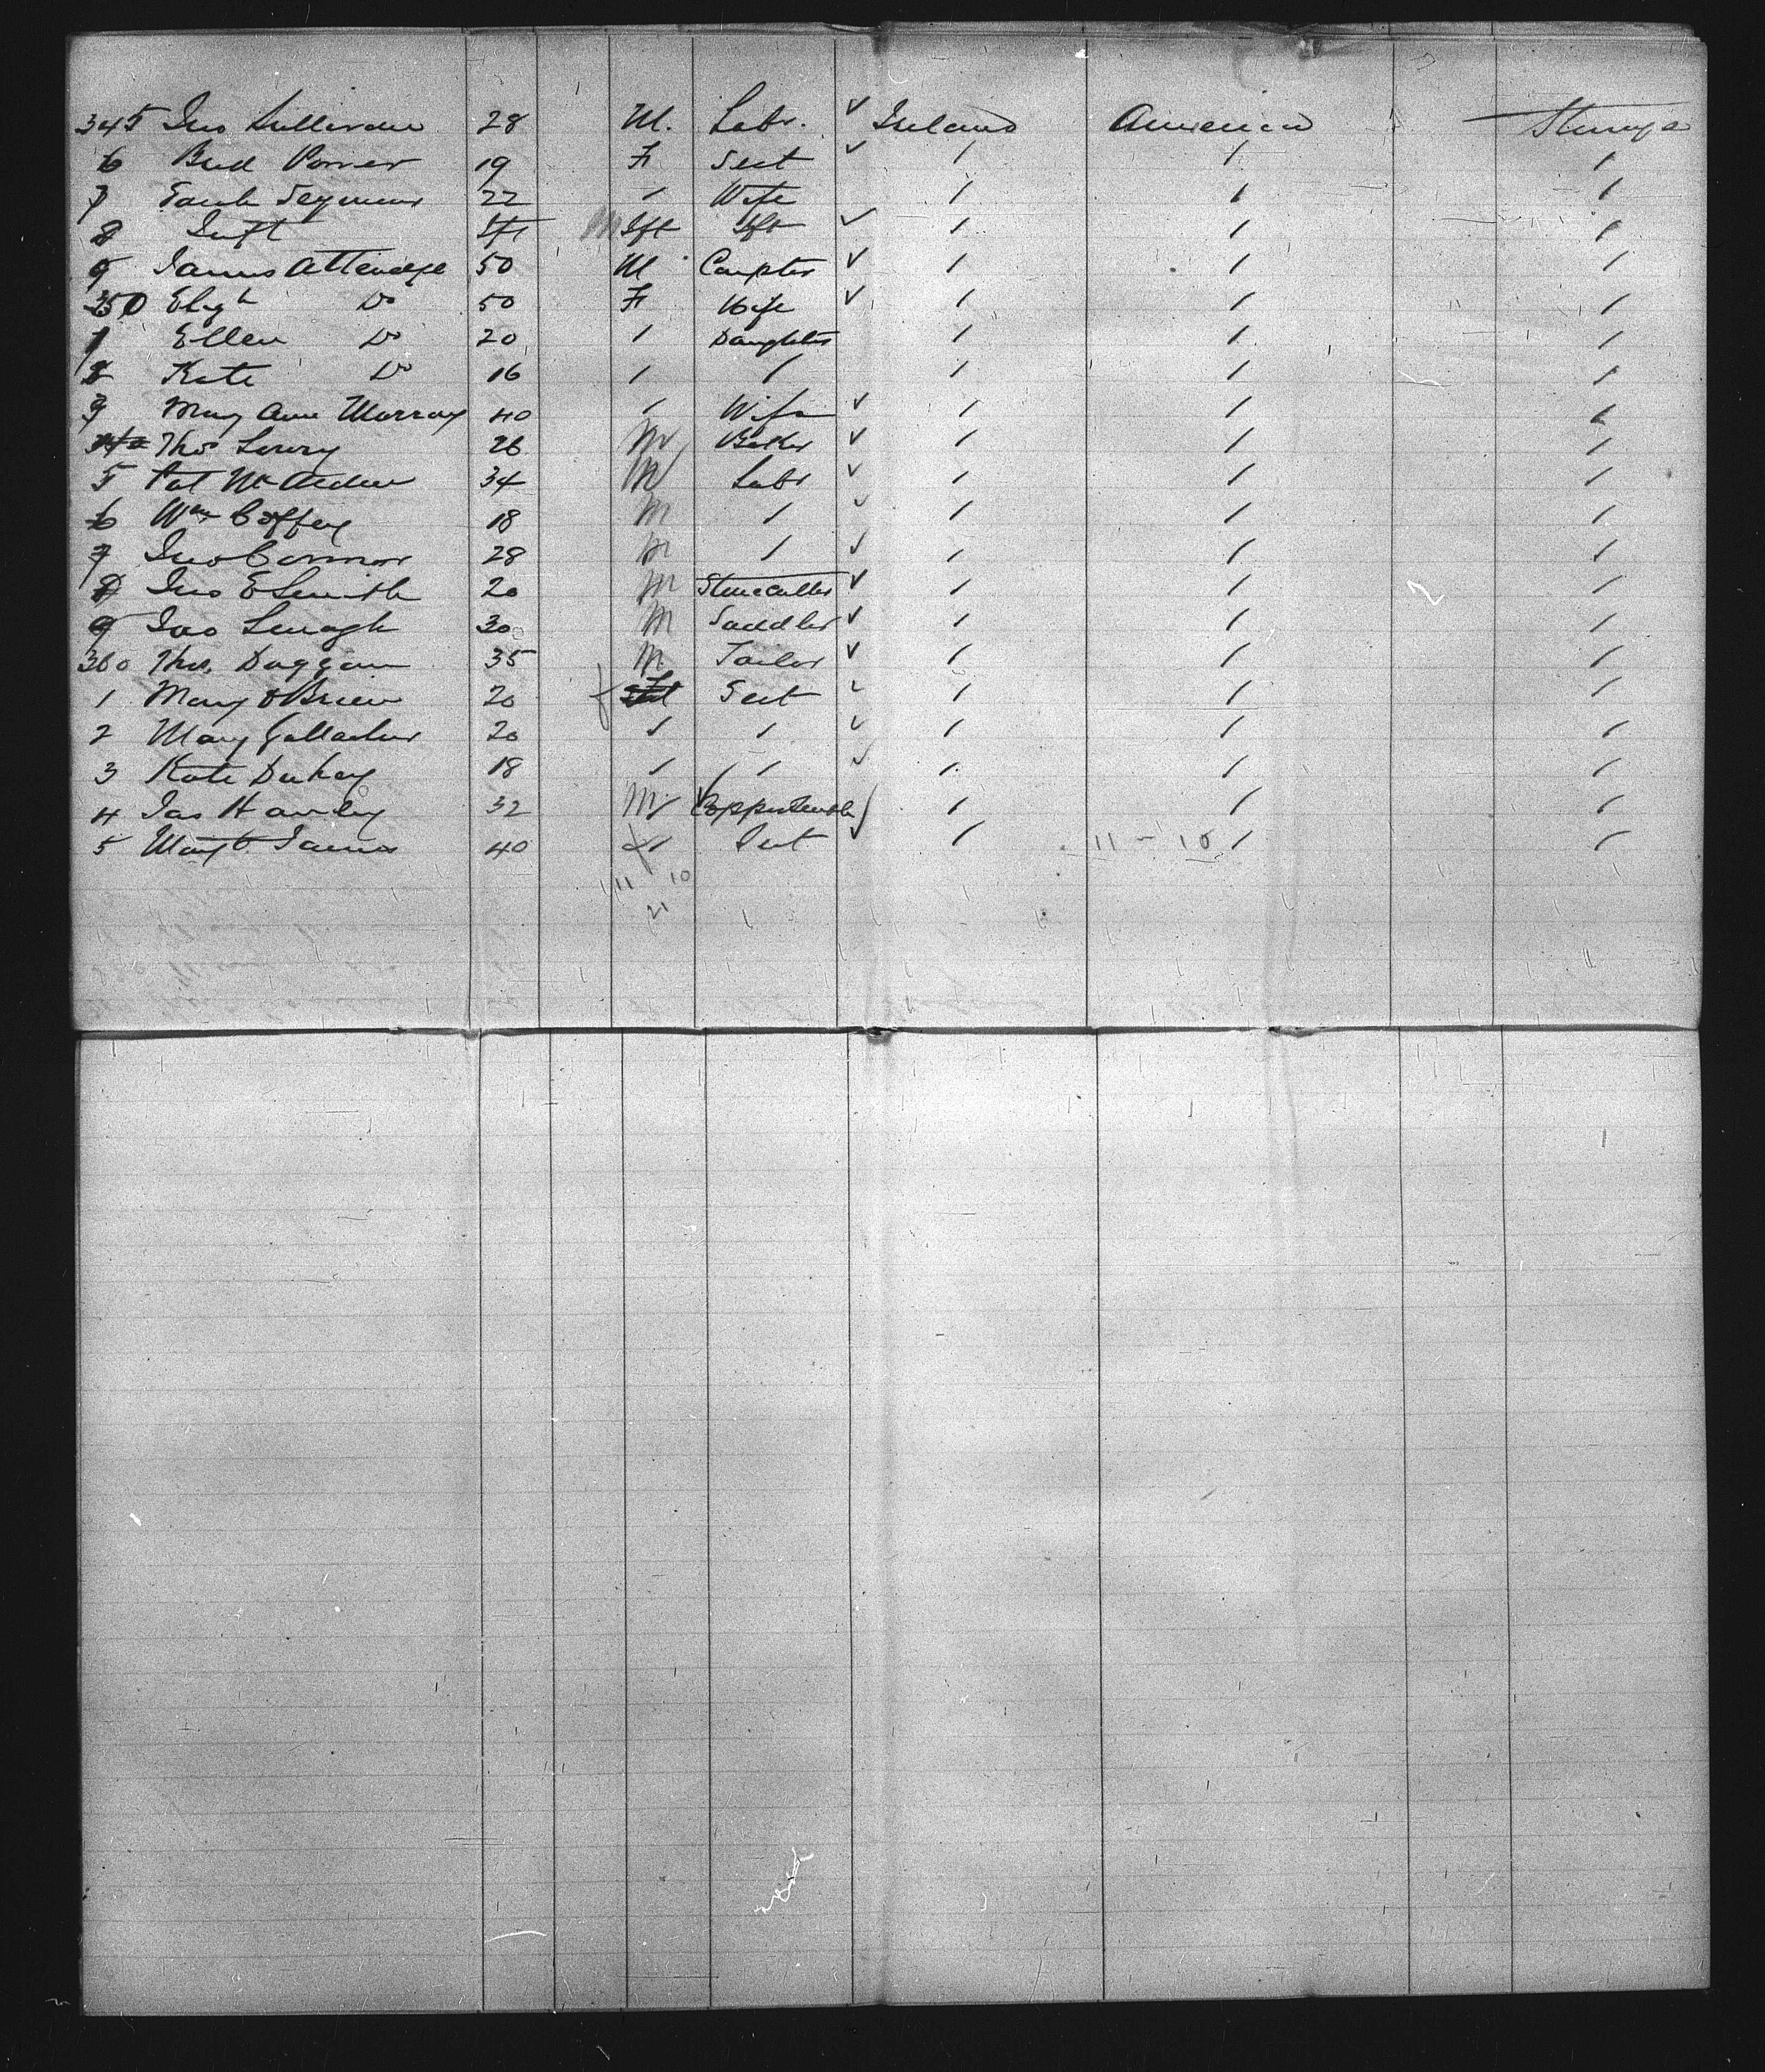 345 Jno Sullivan 28 M. Labr. ✓ Ireland America Steerage
6 Brid Power 19 F Sevt ✓ / / /
7 Sarah Seymour 22 / Wife / / /
8 Inft Ift M Ift Ift ✓ / / /
9 James Atteridge 50 M Carpter ✓ / / /
350 Elizh Do 50 F Wife ✓ / / /
1 Ellen Do 20 / Daughter / / /
2 Kate Do 16 / / / / /
3 Mary Ann Murray 40 / Wife ✓ / / /
Thos Lowry 26 M Baker ✓ / / /
5 Pat McArdew 34 M Labr ✓ / / /
6 Wm Coffey 18 M / ✓ / / /
7 Jno Connor 28 M / ✓ / / /
8 Jno E Smith 20 M Stonecutter ✓ / / /
9 Jno 30 M Saddler ✓ / / /
360 Thos. Duggan 35 M Tailor ✓ / / /
1 Mary O'Brien 20 f F Sevt ✓ / / /
2 Mary Gallacher 20 / / ✓ / / /
3 Kate 18 / / ✓ / / /
4 Jas Hanley 32 M Coppersmith / / /
5 Margt James 40 f / Sevt ✓ / 11 - 10 / /
11 10
21